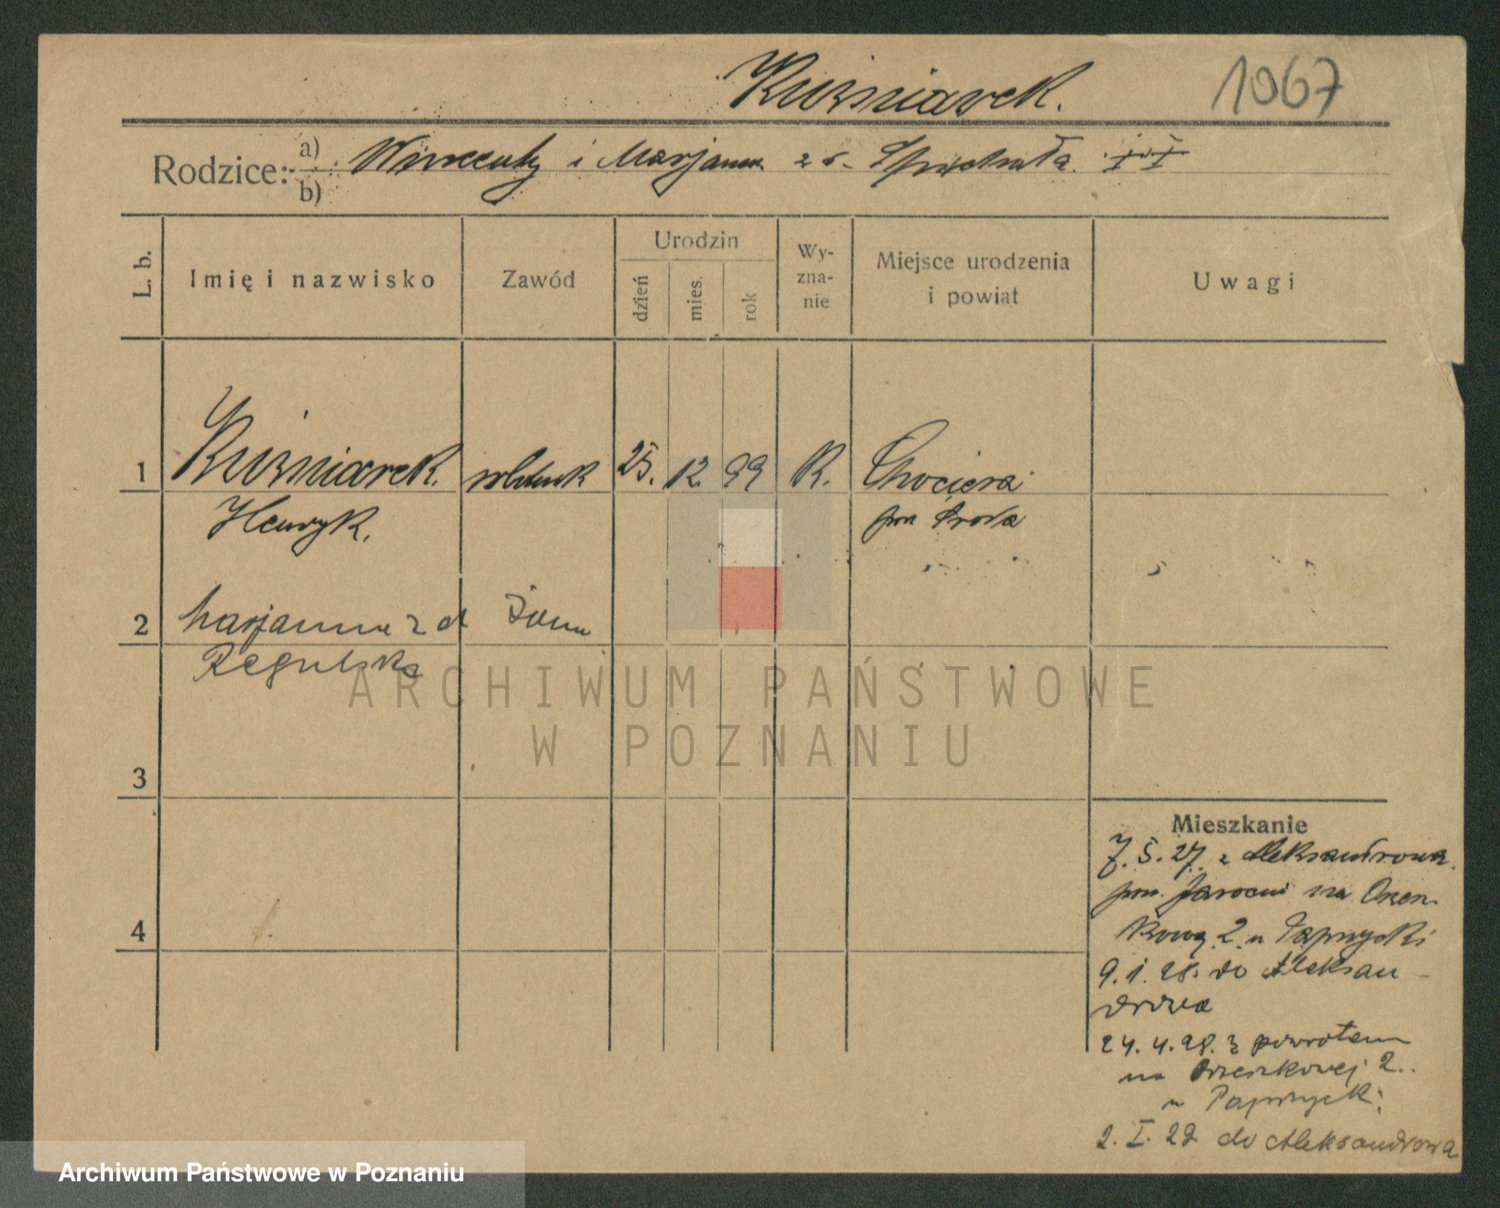 Kuźniarek.
1067
Rodzice: a) Wincenty i Marjanna z d.
b)
L. b.
Imię i nazwisko
Zawód
Urodzin
dzień
mies.
rok
Wy-
zna-
nie
Miejsce urodzenia
i powiat
Uwagi
1 Kuźniarek robotnik 25. 12. 99 R. Chocicza
Henryk. pow Środa
2 Marjanna z d żona
Regulska
3
4
ARCHIWUM PAŃSTWOWE
W POZNANIU
Mieszkanie
7. 5. 27. z Aleksandrowa
pow. Jarocin na Orzesz-
kową 2. u Paprzycki
9. 1. 28. do Aleksan-
drowa
24. 4. 28. z powrotem
na Orzeszkowej 2.
u Paprzyck.
2. I. 29 do Aleksandrowa
Archiwum Państwowe w Poznaniu